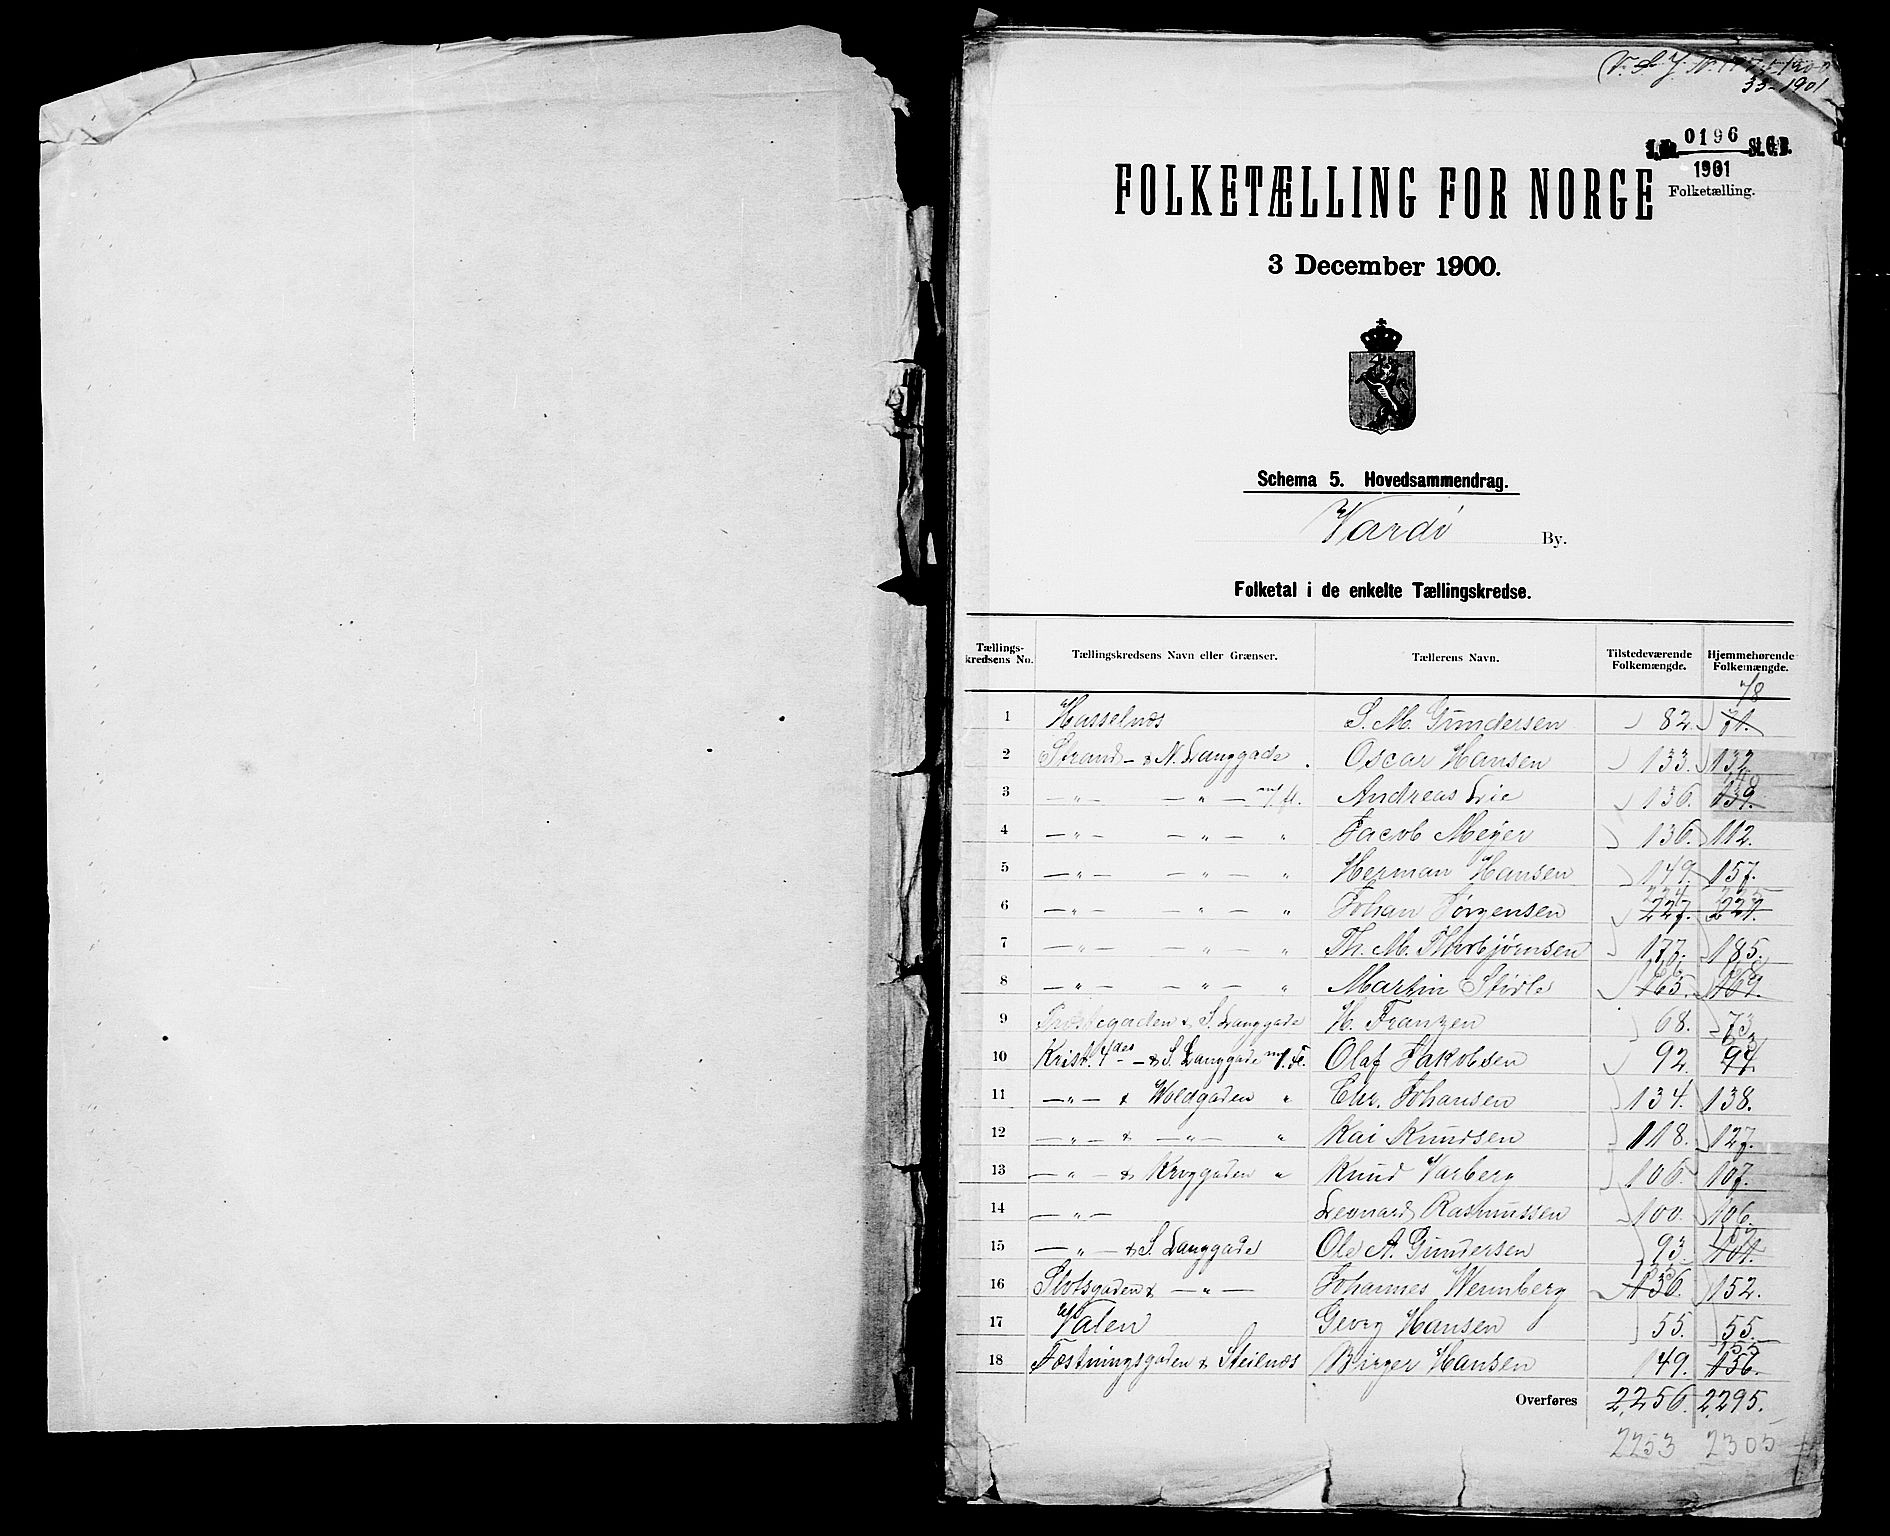 33-1901
0196
1901
Folketælling.
FOLKETÆLLING FOR NORGE
3 December 1900.
Schema 5. Hovedsammendrag.
Vardø By.
Folketal i de enkelte Tællingskredse.
Tællings-kredsens No. Tællingskredsens Navn eller Grænser. Tællerens Navn. Tilstedeværende Folkemængde. Hjemmehørende Folkemængde.
78
1 Hasselnæs S. M. Gundersen 82.
2 Strand- & N. Langgade Oscar Hansen 133. 132
3 -"- -"- m/fl. Andreas Lie 136. 139.
4 -"- -"- " Jacob Meyer 136. 112.
5 -"- -"- " Herman Hansen 149. 157.
6 -"- -"- " Johan Jørgensen 227. 227.
7 -"- -"- " Th. M. Thorbjørnsen 177. 185.
8 -"- -"- " Martin Stirle 165. 169.
9 & S. Langgade H. Franzen 68. 73
10 Krist. 4des- & S. Langgade m/fl. Olaf Jakobsen 92. 94.
11 -"- & Woldgaden " Chr. Johansen 134. 138.
12 -"- & -"- " Kai Knudsen 118. 127.
13 -"- & Kroggaden " Knud Varberg 106. 107.
14 -"- Leonard Rasmussen 100. 106.
15 -"- & S. Langgade Ole A. Gundersen 93. 101.
16 Slotsgaden & -"- Johannes Wennberg 136. 152.
17 Valen Georg Hansen 55. 55.
18 Fæstningsgaden & Steilnæs Birger Hansen 149. 156.
Overføres 2,256. 2,295.
2253 2305